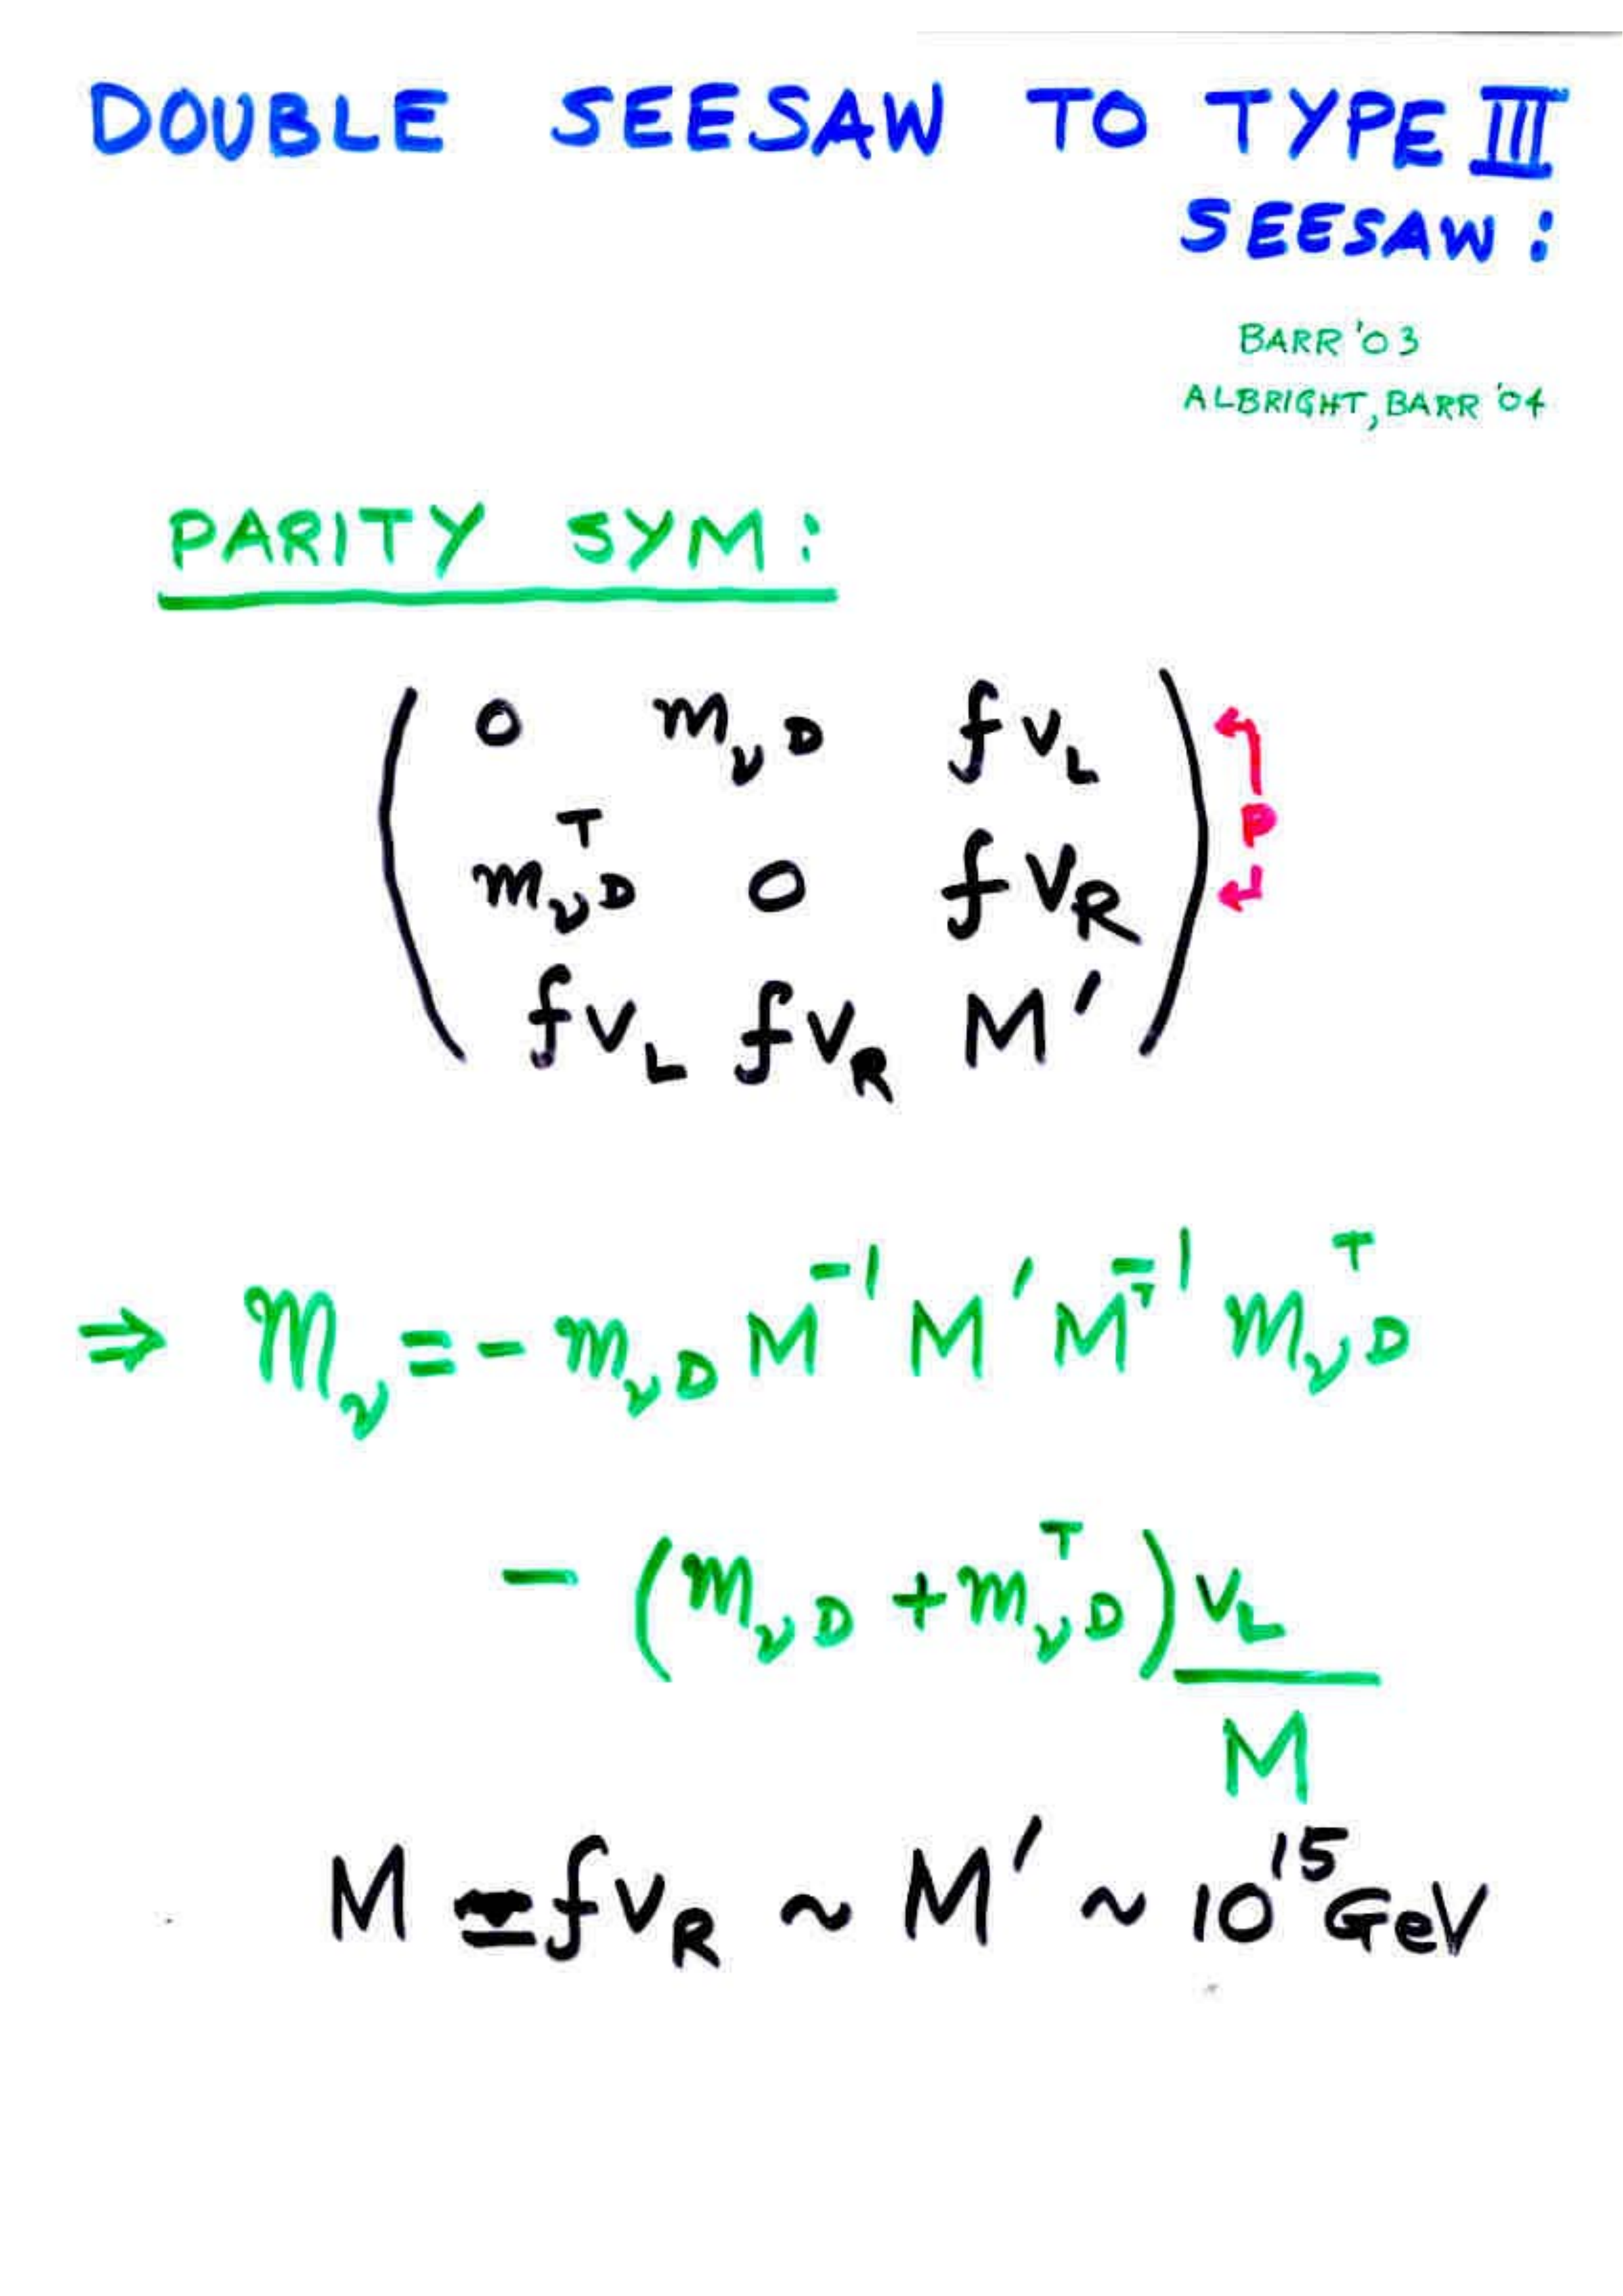 DOUBLE SEESAW TO TYPE III
SEESAW :
BARR '03
ALBRIGHT, BARR '04
PARITY SYM :
0 m_νD f v_L
m_νD^T 0 f v_R
P
f v_L f v_R M'
⇒ M_ν = - m_νD M^-1 M' M^T^-1 m_νD^T
- (m_νD + m_νD^T) v_L / M
M ≃ f v_R ~ M' ~ 10^15 GeV